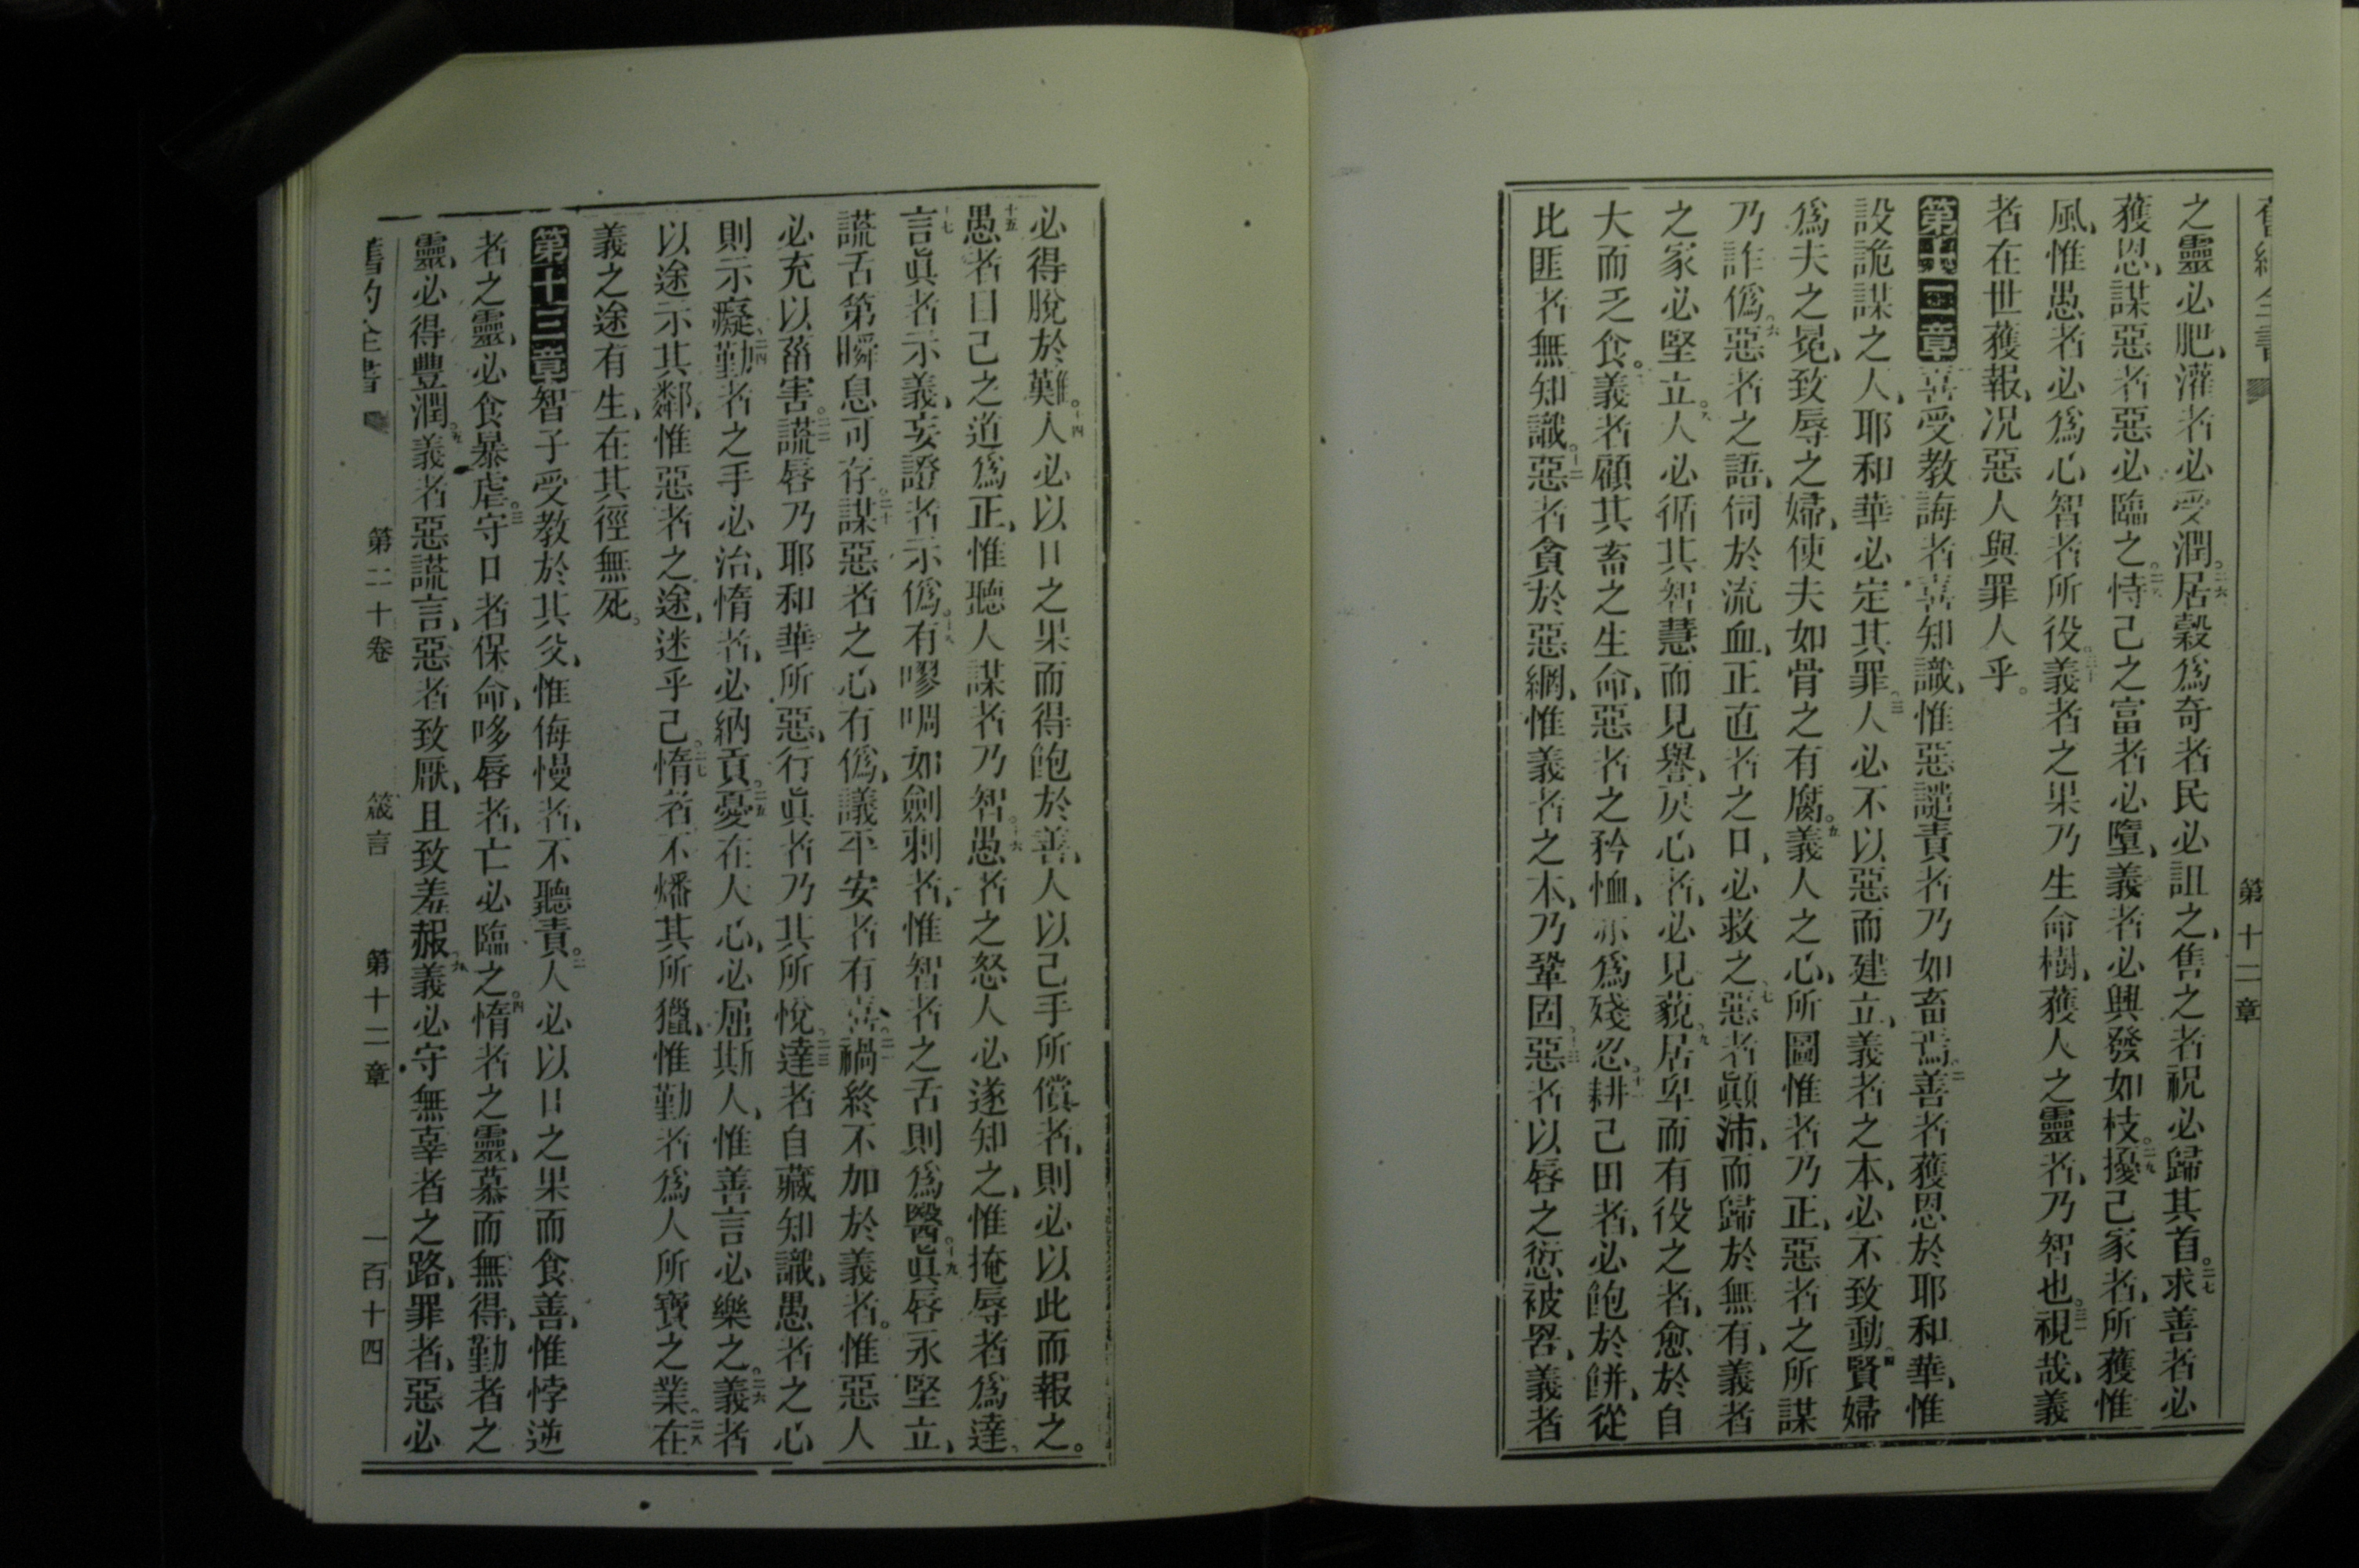 第十二章
之靈必肥、灌者必受潤。二六居穀爲奇者民必詛之、售之者祝必歸其首。二七求善者必
獲恩、謀惡者惡必臨之。二八恃己之富者必墮、義者必興發如枝。二九擾己家者、所獲惟
風、惟愚者必爲心智者所役。三十義者之果乃生命樹、獲人之靈者、乃智也。三一視哉、義
者在世獲報、况惡人與罪人乎。
第十二章喜受教誨者喜知識、惟惡譴責者乃如畜焉。二善者獲恩於耶和華、惟
設詭謀之人、耶和華必定其罪。三人必不以惡而建立、義者之本、必不致動。四賢婦
爲夫之冕、致辱之婦、使夫如骨之有腐。五義人之心、所圖惟者乃正、惡者之所謀
乃詐僞。六惡者之語、伺於流血、正直者之口、必救之。七惡者顚沛、而歸於無有、義者
之家必堅立。八人必循其智慧而見譽、戾心者、必見藐。九居卑而有役之者、愈於自
大而乏食。十義者顧其畜之生命、惡者之矜恤、亦爲殘忍。十一耕己田者、必飽於餅、從
比匪者無知識。十二惡者貪於惡網、惟義者之本、乃鞏固。十三惡者以唇之愆被罟、義者
必得脫於難。十四人必以口之果而得飽於善、人以己手所償者、則必以此而報之。
十五愚者目己之道爲正、惟聽人謀者乃智。十六愚者之怒人必遂知之、惟掩辱者爲達。
十七言眞者示義、妄證者示僞。十八有嘐啁如劍刺者、惟智者之舌則爲醫。十九眞唇永堅立、
謊舌第瞬息可存。二十謀惡者之心有僞、議平安者有喜。二一禍終不加於義者。惟惡人
必充以菑害。二二謊唇乃耶和華所惡、行眞者乃其所悅。二三達者自藏知識、愚者之心
則示癡。二四勤者之手必治、惰者、必納貢。二五憂在人心、必屈斯人、惟善言必樂之。二六義者
以途示其鄰、惟惡者之途、迷乎己。二七惰者不燔其所獵、惟勤者爲人所寶之業。二八在
義之途有生、在其徑無死。
第十三章智子受教於其父、惟侮慢者、不聽責。二人必以口之果而食善、惟悖逆
者之靈、必食暴虐。三守口者保命、哆唇者、亡必臨之。四惰者之靈、慕而無得、勤者之
靈、必得豐潤。五義者惡謊言、惡者致厭、且致羞赧。六義必守無辜者之路、罪者、惡必
舊約全書 第二十卷 箴言 第十二章 一百十四